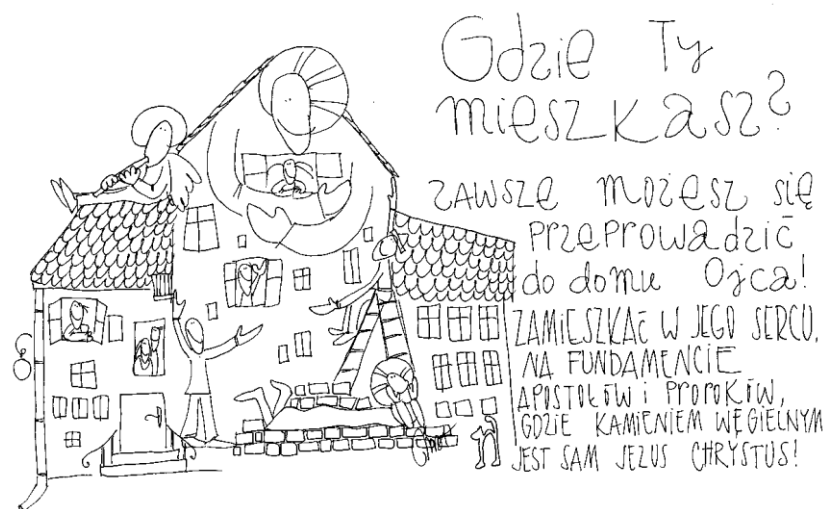 Gdzie Ty
mieszkasz?
ZAWSZE możesz się
PRZEPROWAdzić
do domu Ojca!
ZAMIESZKAĆ W JEGO SERCU,
NA FUNDAMENCIE
APOSTOŁÓW i PROROKÓW,
GDZIE KAMIENIEM WĘGIELNYM
JEST SAM JEZUS CHRYSTUS!